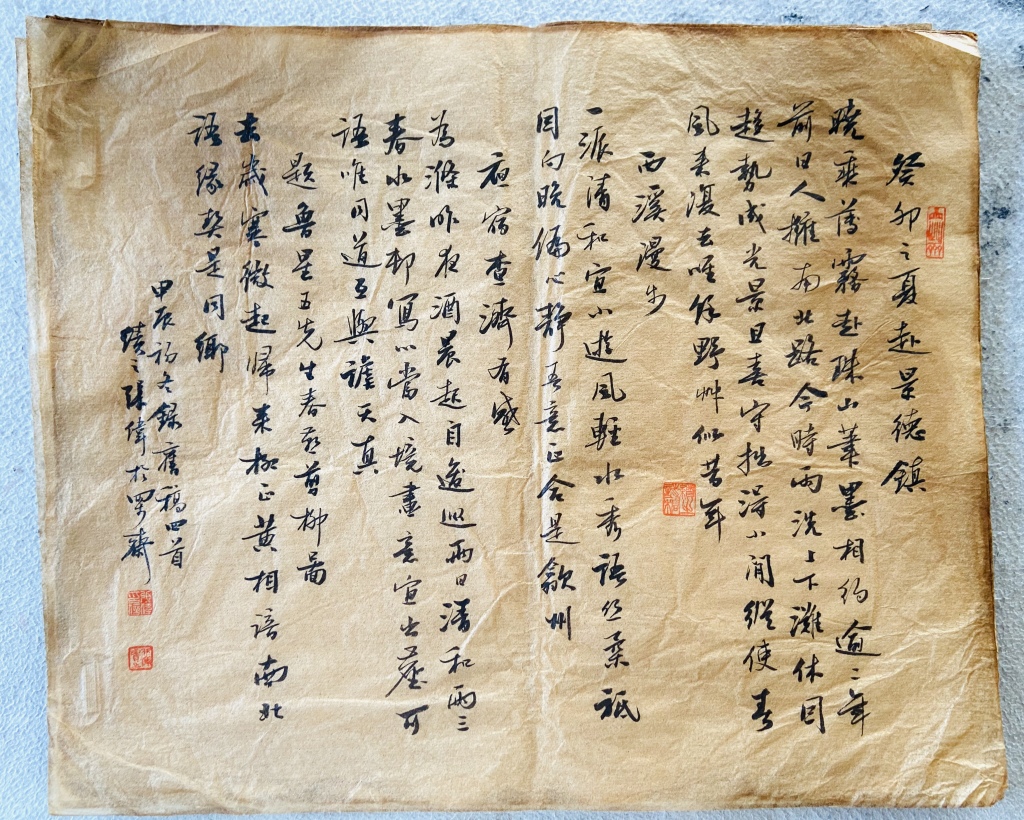 癸卯之夏赴景德鎮
曉乘薄霧赴珠山筆墨相約逾二年
前日人擁南北路今時雨洗上下灘休因
趨勢成光景且喜守拙得小閒縱使春
風來復去唯餘野艸似昔年
西溪漫步
一派清和宜小遊風輕水秀語丝柔祇
因向晚偏心靜吾意正合是歙州
夜宿查濟有感
為滌昨夜酒晨起自逡巡雨日清和兩三
春水墨邨寫心當入境畫意宜出塵可
語唯同道互與誰天真
題魯星五先生春燕剪柳圖
去歲寒微起歸來柳正黃相語南北
語緣契是同鄉
甲辰初冬錄舊稿四首
張偉於齋